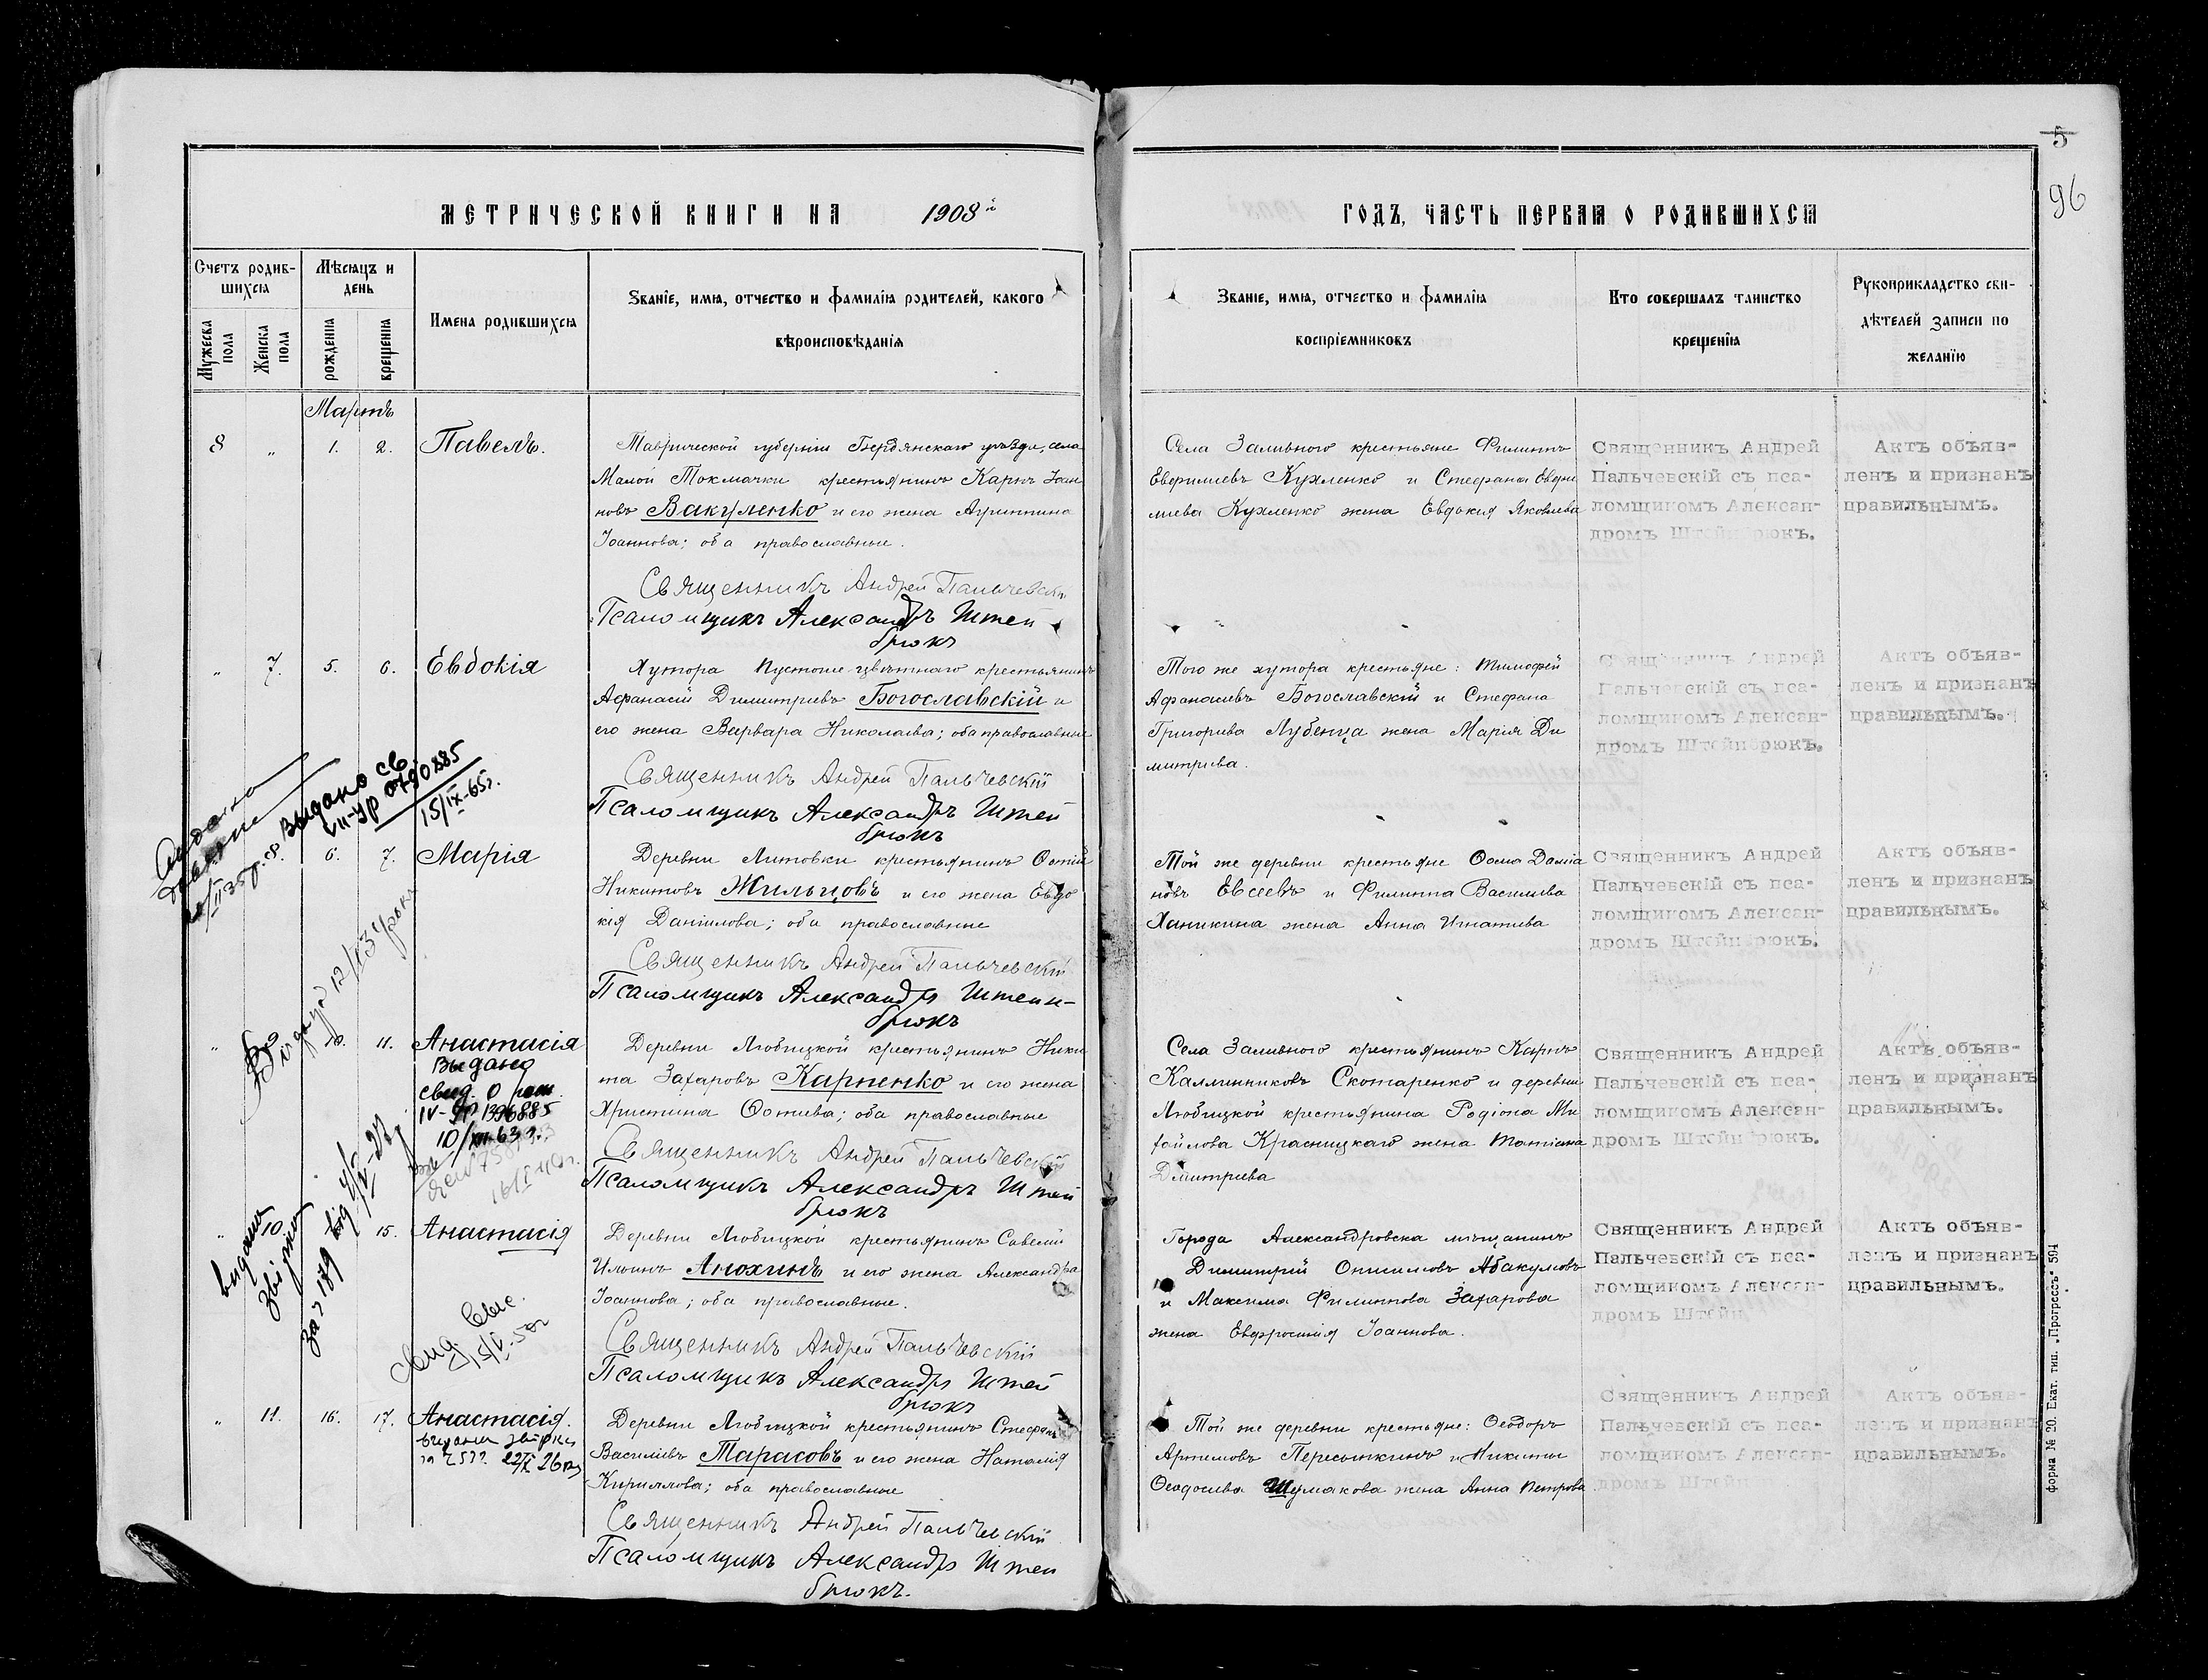 5
96
МЕТРИЧЕСКОЙ КНИГИ НА 1908й
ГОДЪ, ЧАСТЬ ПЕРВАЯ О РОДИВШИХСЯ
Счетъ родив-
шихся
Мужеска пола
Женска пола
Мѣсяцъ и
день
рожденія
крещенія
Имена родившихся
Званіе, имя, отчество и фамилія родителей, какого
вѣроисповѣданія
Званіе, имя, отчество и фамилія
воспріемниковъ
Кто совершалъ таинство
крещенія
Рукоприкладство сви-
дѣтелей записи по
желанію
Мартъ
8 „ 1. 2. Павелъ.
Таврической губерніи Бердянскаго уѣзда, села
Малой Токмачки крестьянинъ Карпъ Іоан
новъ Вакуленко и его жена Агриппина
Іоаннова; оба православные.
Священникъ Андрей Пальчевскій
Псаломщикъ Александръ Штей
брюкъ
Села Заливного крестьяне Филиппъ
Евфимиевъ Кухленко и Стефана Евфи
миева Кухленко жена Евдокия Яковлева
Священникъ Андрей
Пальчевскій съ пса-
ломщикомъ Алексан-
дромъ Штейнбрюкъ.
Актъ объяв-
ленъ и признанъ
правильнымъ.
„ 7. 5. 6. Евдокія
Хутора Пустоше-цвѣтнаго крестьянинъ
Афанасій Димитриевъ Богославскій и
его жена Варвара Николаева; оба православные
Священникъ Андрей Пальчевскій
Псаломщикъ Александръ Штей
брюкъ
Того же хутора крестьяне: Тимофей
Афанасиевъ Богославскій и Стефана
Григорива Лубенца жена Марія Ди
митриева.
Священникъ Андрей
Пальчевскій съ пса-
ломщикомъ Алексан-
дромъ Штейнбрюкъ.
Актъ объяв-
ленъ и признанъ
правильнымъ.
Выдано св.
15/IX-65г.
6. 7. Марія
Деревни Литовки крестьянинъ Фотій
Никитовъ Жильцовъ и его жена Евдо
кія Даніилова; оба православные
Священникъ Андрей Пальчевскій
Псаломщикъ Александръ Штейн-
брюкъ
Той же деревни крестьяне Фома Даміа
новъ Евсеевъ и Филиппа Василиева
Ханикина жена Анна Игнатиева
Священникъ Андрей
Пальчевскій съ пса-
ломщикомъ Алексан-
дромъ Штейнбрюкъ.
Актъ объяв-
ленъ и признанъ
правильнымъ.
„ 11. Анастасія
Выдано
свид. о
10/XII-63 г.
Деревни Любицкой крестьянинъ Ники
та Захаровъ Карпенко и его жена
Христина Фотиева; оба православные
Священникъ Андрей Пальчевскій
Псаломщикъ Александръ Штей
брюкъ
Села Заливного крестьянинъ Карпъ
Каллинниковъ Скотаренко и деревни
Любицкой крестьянина Родіона Ми
хайлова Красницкаго жена Татіана
Дмитриева
Священникъ Андрей
Пальчевскій съ пса-
ломщикомъ Алексан-
дромъ Штейнбрюкъ.
Актъ объяв-
ленъ и признанъ
правильнымъ.
„ 10. 15. Анастасія
Деревни Любицкой крестьянинъ Савелій
Ильинъ Анохинъ и его жена Александра
Іоаннова; оба православные.
Священникъ Андрей Пальчевскій
Псаломщикъ Александръ Штей
брюкъ
Города Александровска мѣщанинъ
Димитрий Онисимовъ Абакумовъ
и Максима Филиппова Захарова
жена Евфросинія Іоаннова.
Священникъ Андрей
Пальчевскій съ пса-
ломщикомъ Алексан-
дромъ Штейн
Актъ объяв-
ленъ и признанъ
правильнымъ.
„ 11. 16. 17. Анастасія.
Деревни Любицкой крестьянинъ Стефанъ
Василиевъ Тарасовъ и его жена Наталія
Кириллова; оба православные
Священникъ Андрей Пальчевскій
Псаломщикъ Александръ Штей
брюкъ.
Той же деревни крестьяне: Феодоръ
Артемовъ Пересыпкинъ и Никиты
Феодосиева Шумакова жена Анна Петрова
Священникъ Андрей
Пальчевскій съ пса-
ломщикомъ Алексан-
дромъ Штейн
Актъ объяв-
ленъ и признанъ
правильнымъ.
Форма № 20. Екат. тип. „Прогрессъ" 594